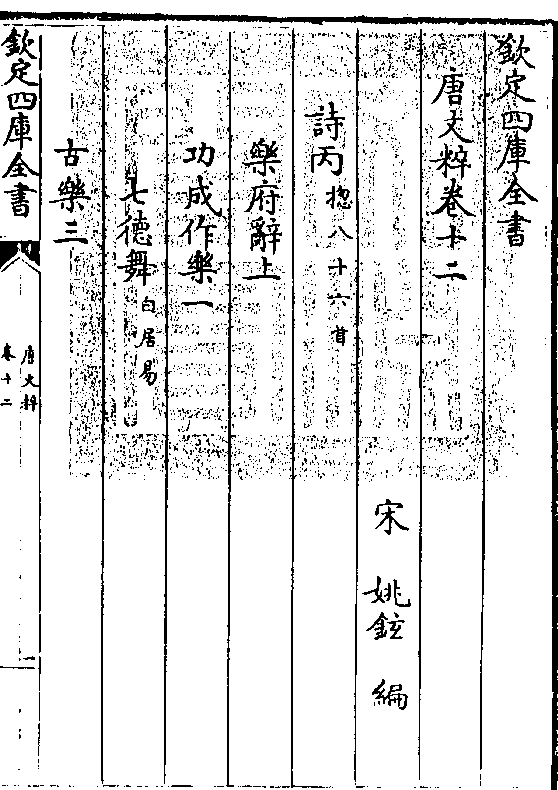 欽定四庫全書
唐文粹卷十二
宋 姚鉉 編
詩丙 揔八十六首
樂府辭上
功成作樂一
七德舞 白居易
古樂三
欽定四庫全書
唐文粹
卷十二
一